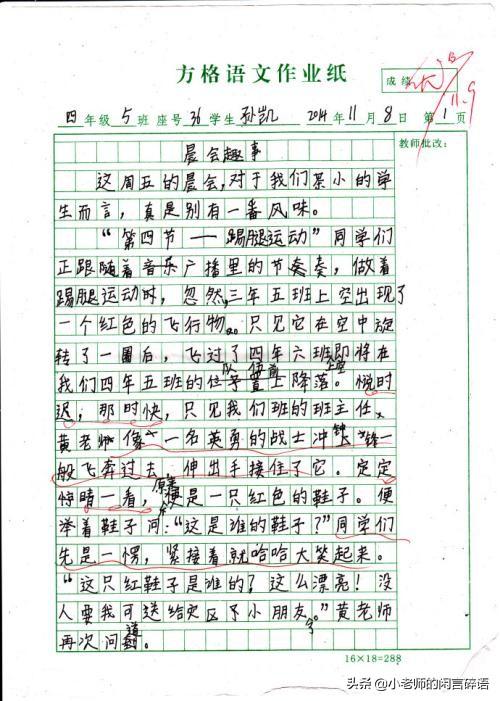 方格语文作业纸
成绩 优
11.9
四年级 5班 座号36 学生 孙凯 2014年11月8日 第1页
教师批改:
晨会趣事
这周五的晨会,对于我们某小的学
生而言,真是别有一番风味。
“第四节——踢腿运动”同学们
正跟随着音乐广播里的节奏,做着
踢腿运动时,忽然,三年五班上空出现了
一个红色的飞行物。只见它在空中旋
转了一圈后,飞过了四年六班即将在
我们四年五班的队伍前上空降落。悦时
迟,那时快,只见我们班的班主任
黄老师像一名英勇的战士冲锋一
般飞奔过去,伸出手接住了它。定
睛一看,原来是一只红色的鞋子。便
举着鞋子问:“这是谁的鞋子?”同学们
先是一愣,紧接着就哈哈大笑起来。
“这只红鞋子是谁的?这么漂亮!没
人要我可送给灾区小朋友。”黄老师
再次问道。
16×18=288
头条 @小老师的闲言碎语